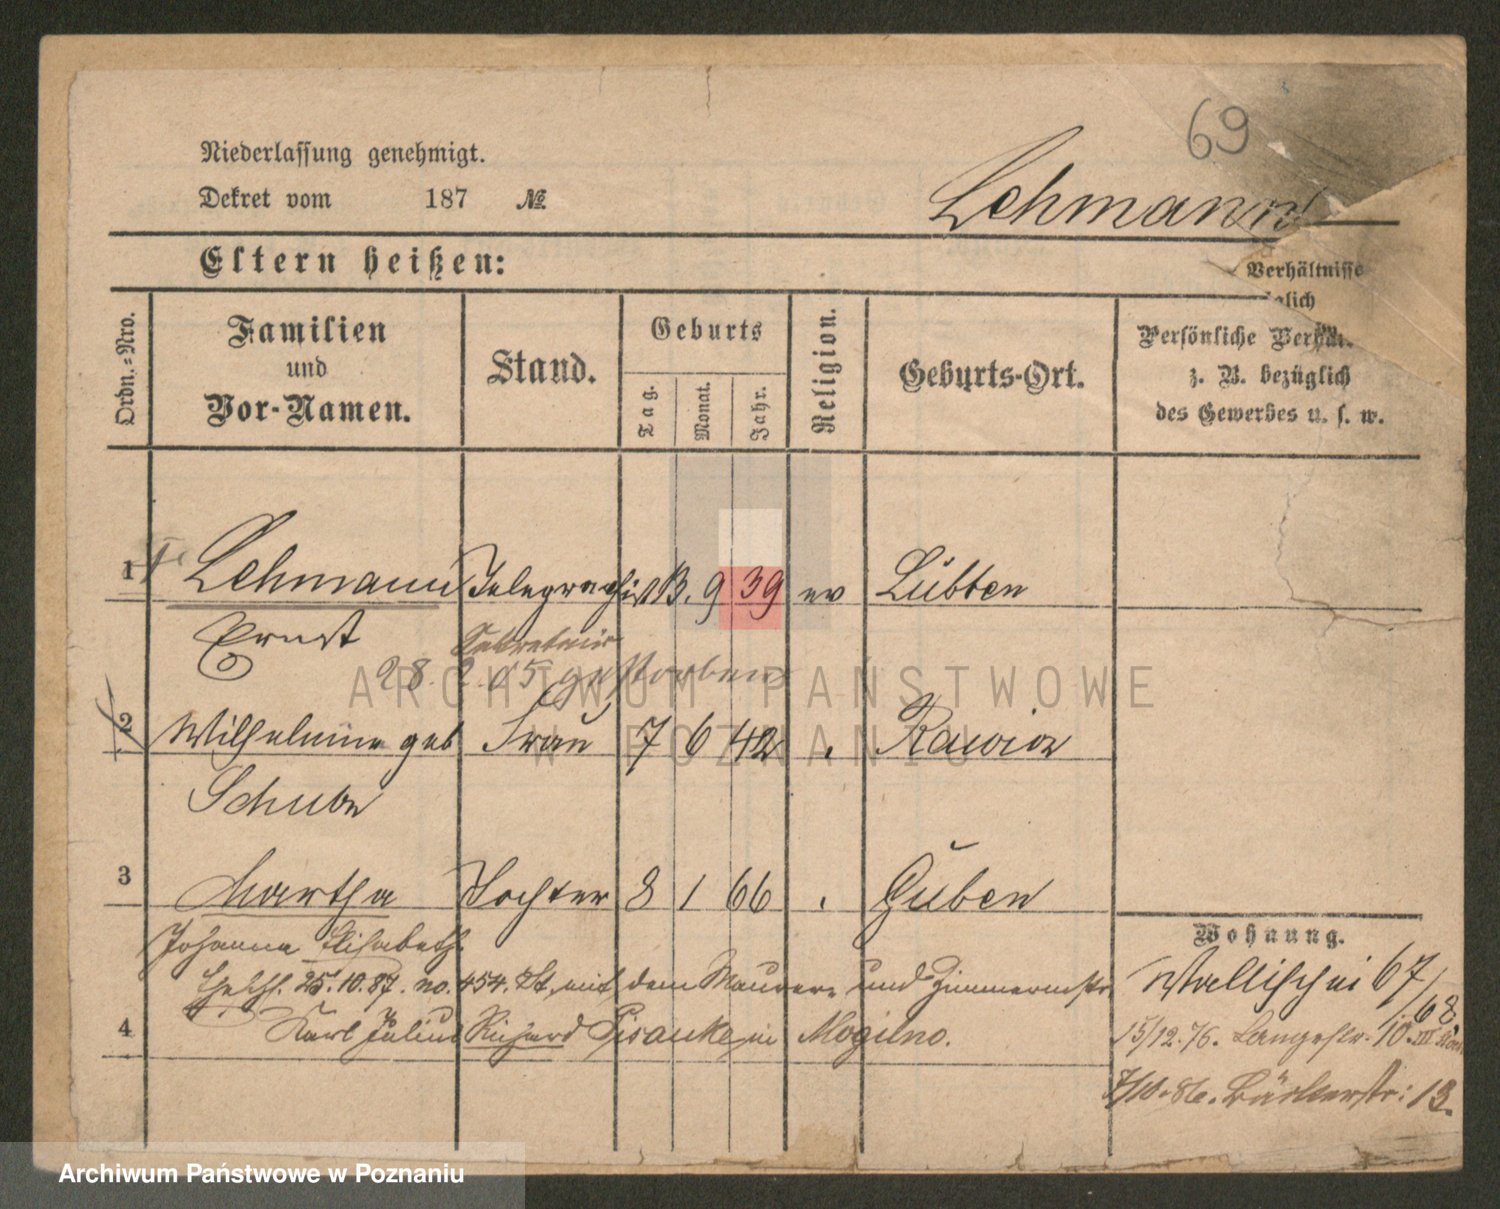 69
Niederlassung genehmigt.
Dekret vom 187 №
Lehmann
Eltern heißen:
Verhältnisse
Ordn.-Nro.
Familien
und
Vor-Namen.
Stand.
Geburts
Tag.
Monat.
Jahr.
Religion.
Geburts-Ort.
Persönliche
z. B. bezüglich
des Gewerbes u. s. w.
1 Lehmann Telegraphist 13. 9 39 ev Lübben
Ernst Sekretair
28. 2. 05 gestorben
2 Wilhelmine geb Frau 7 6 42 . Rawicz
Schube
3 Martha Tochter 8 1 66 . Guben
Johanna Elisabeth
25.10.87. no. 454. mit dem Maurer- und Zimmermstr.
4 Karl Julius Richard in Mogilno.
Wohnung.
Wallischei 67/68
15/12.76. Langestr. 10. III
7/10.86. Bäckerstr: 13.
ARCHIWUM PAŃSTWOWE
W POZNANIU
Archiwum Państwowe w Poznaniu